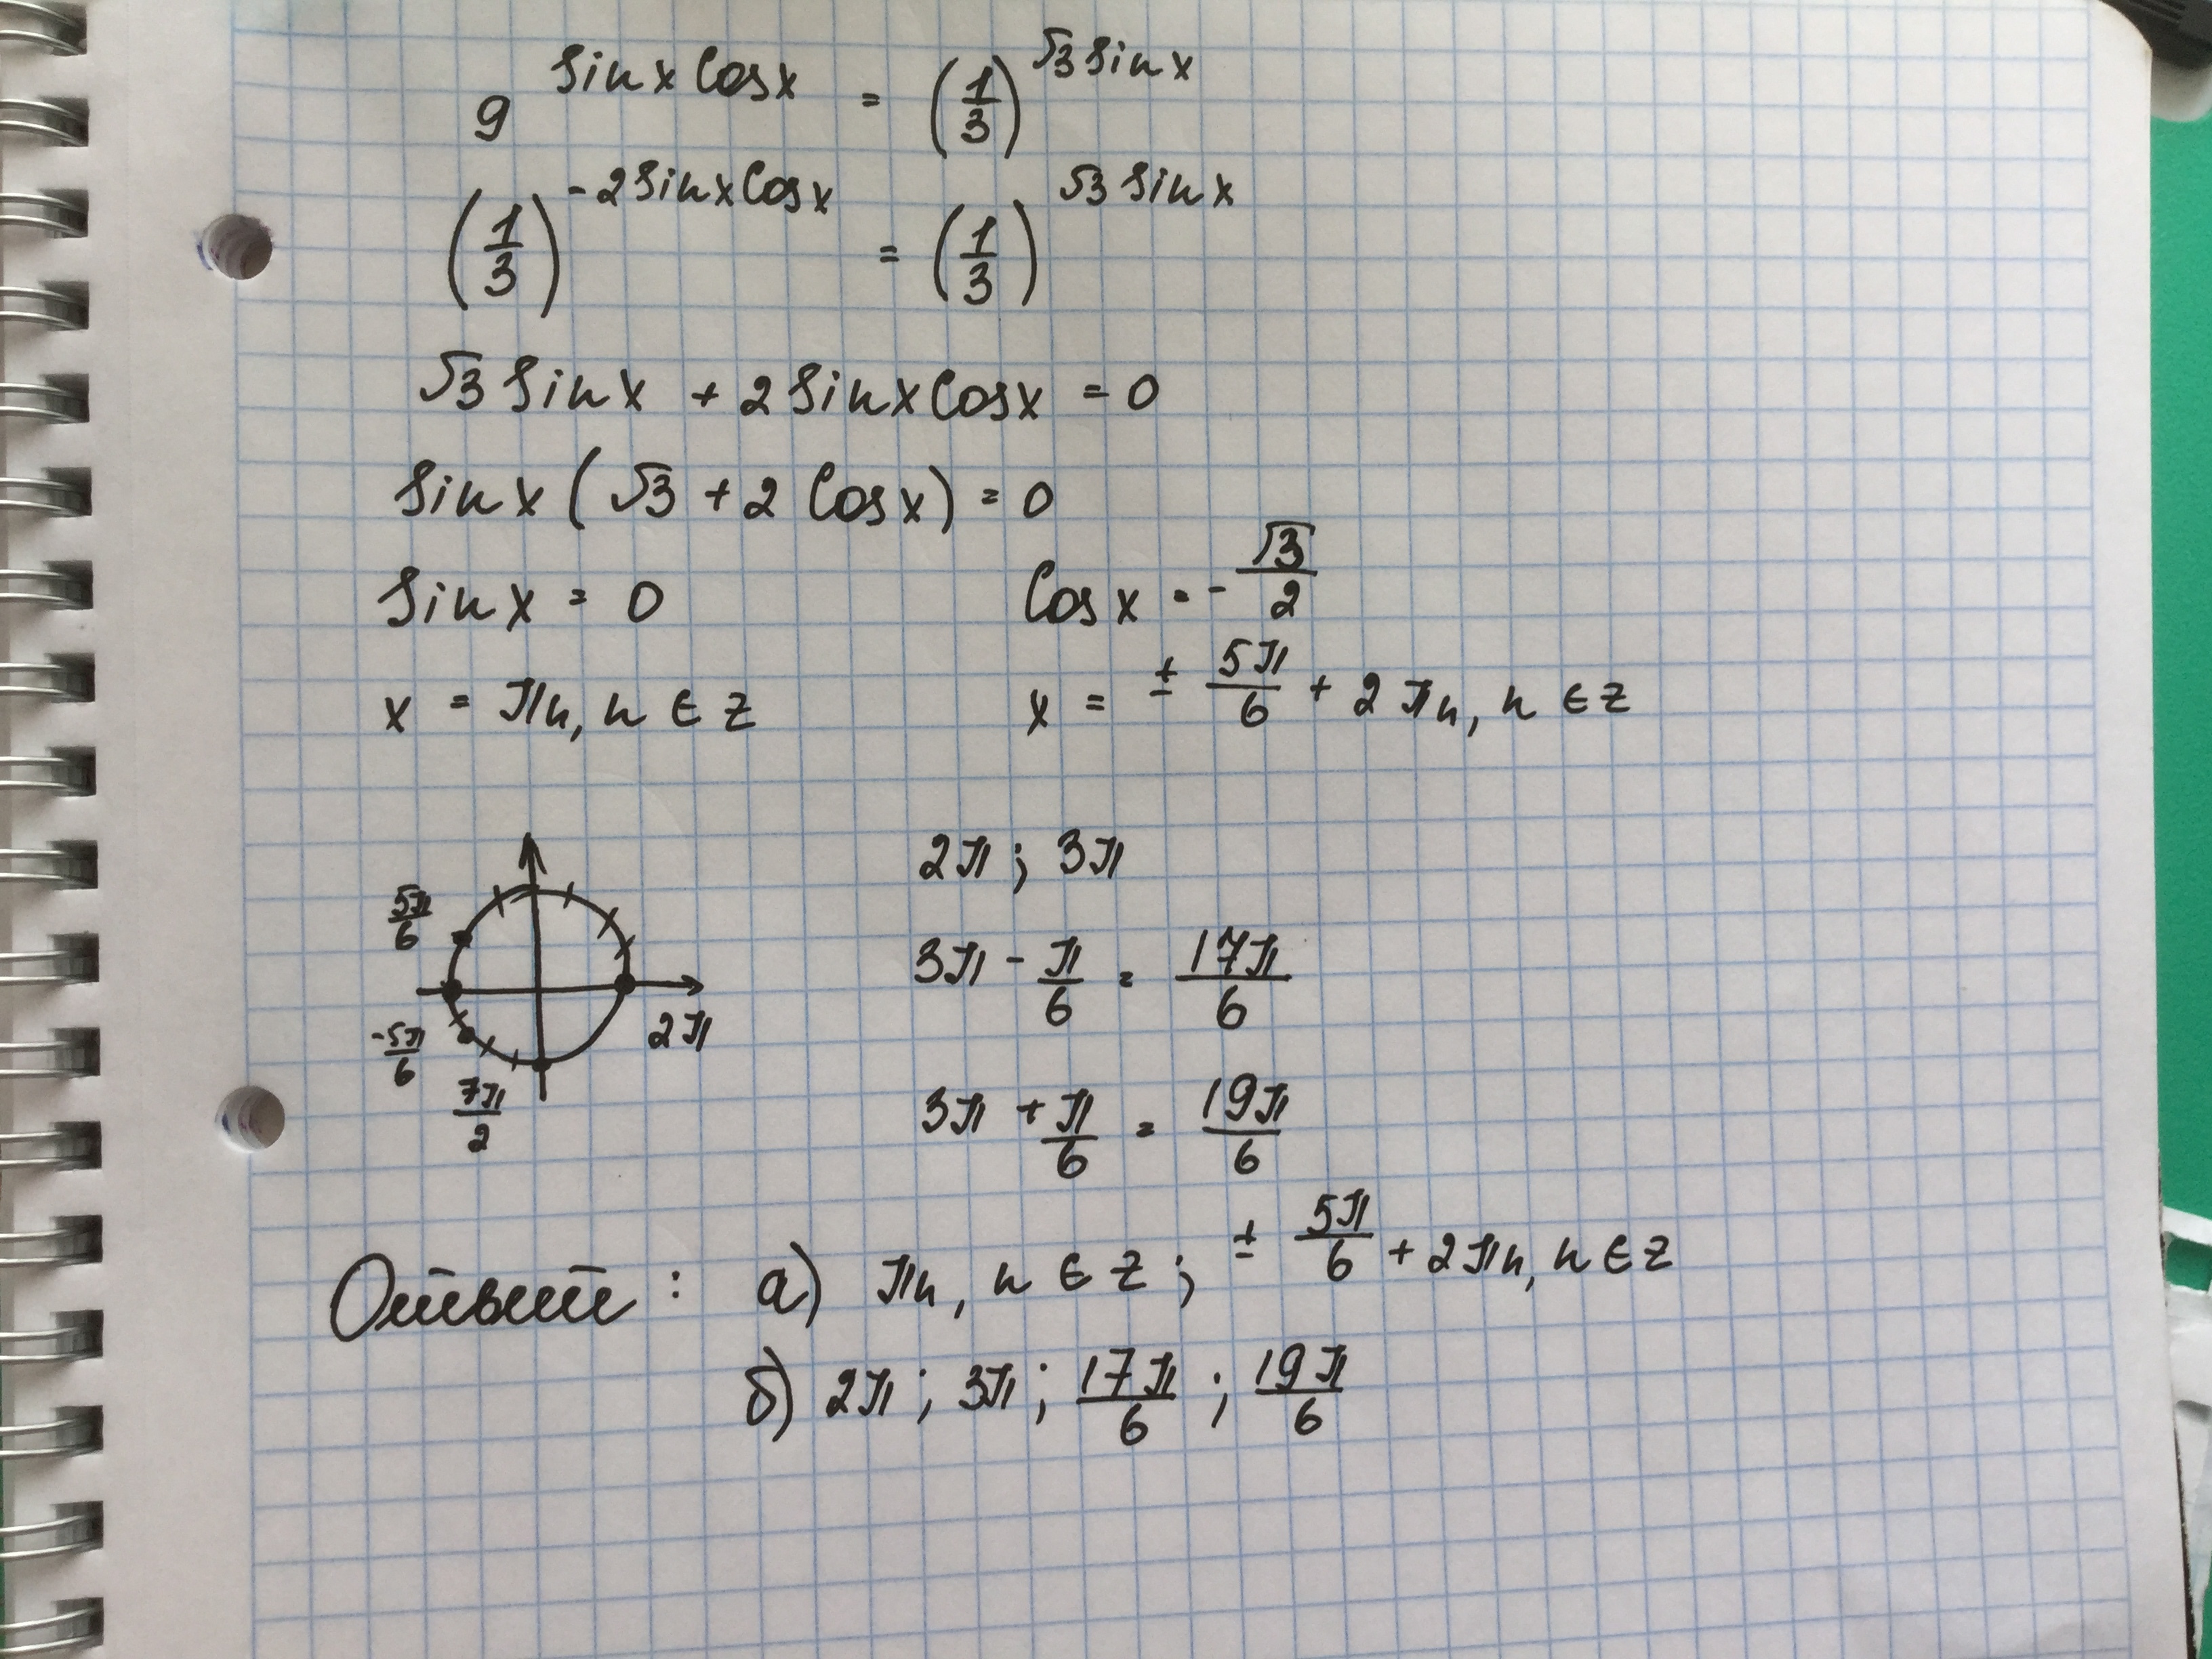 9^(sinx cosx) = (1/3)^(√3 sinx)
(1/3)^(-2sinx cosx) = (1/3)^(√3 sinx)
√3 sinx + 2 sinx cosx = 0
sinx (√3 + 2 cosx) = 0
sinx = 0 cosx = -√3/2
x = πn, n ∈ z x = ± 5π/6 + 2πn, n ∈ z
2π; 3π
5π/6
3π - π/6 = 17π/6
2π
-5π/6
7π/2
3π + π/6 = 19π/6
Ответ: а) πn, n ∈ z; ± 5π/6 + 2πn, n ∈ z
б) 2π; 3π; 17π/6; 19π/6